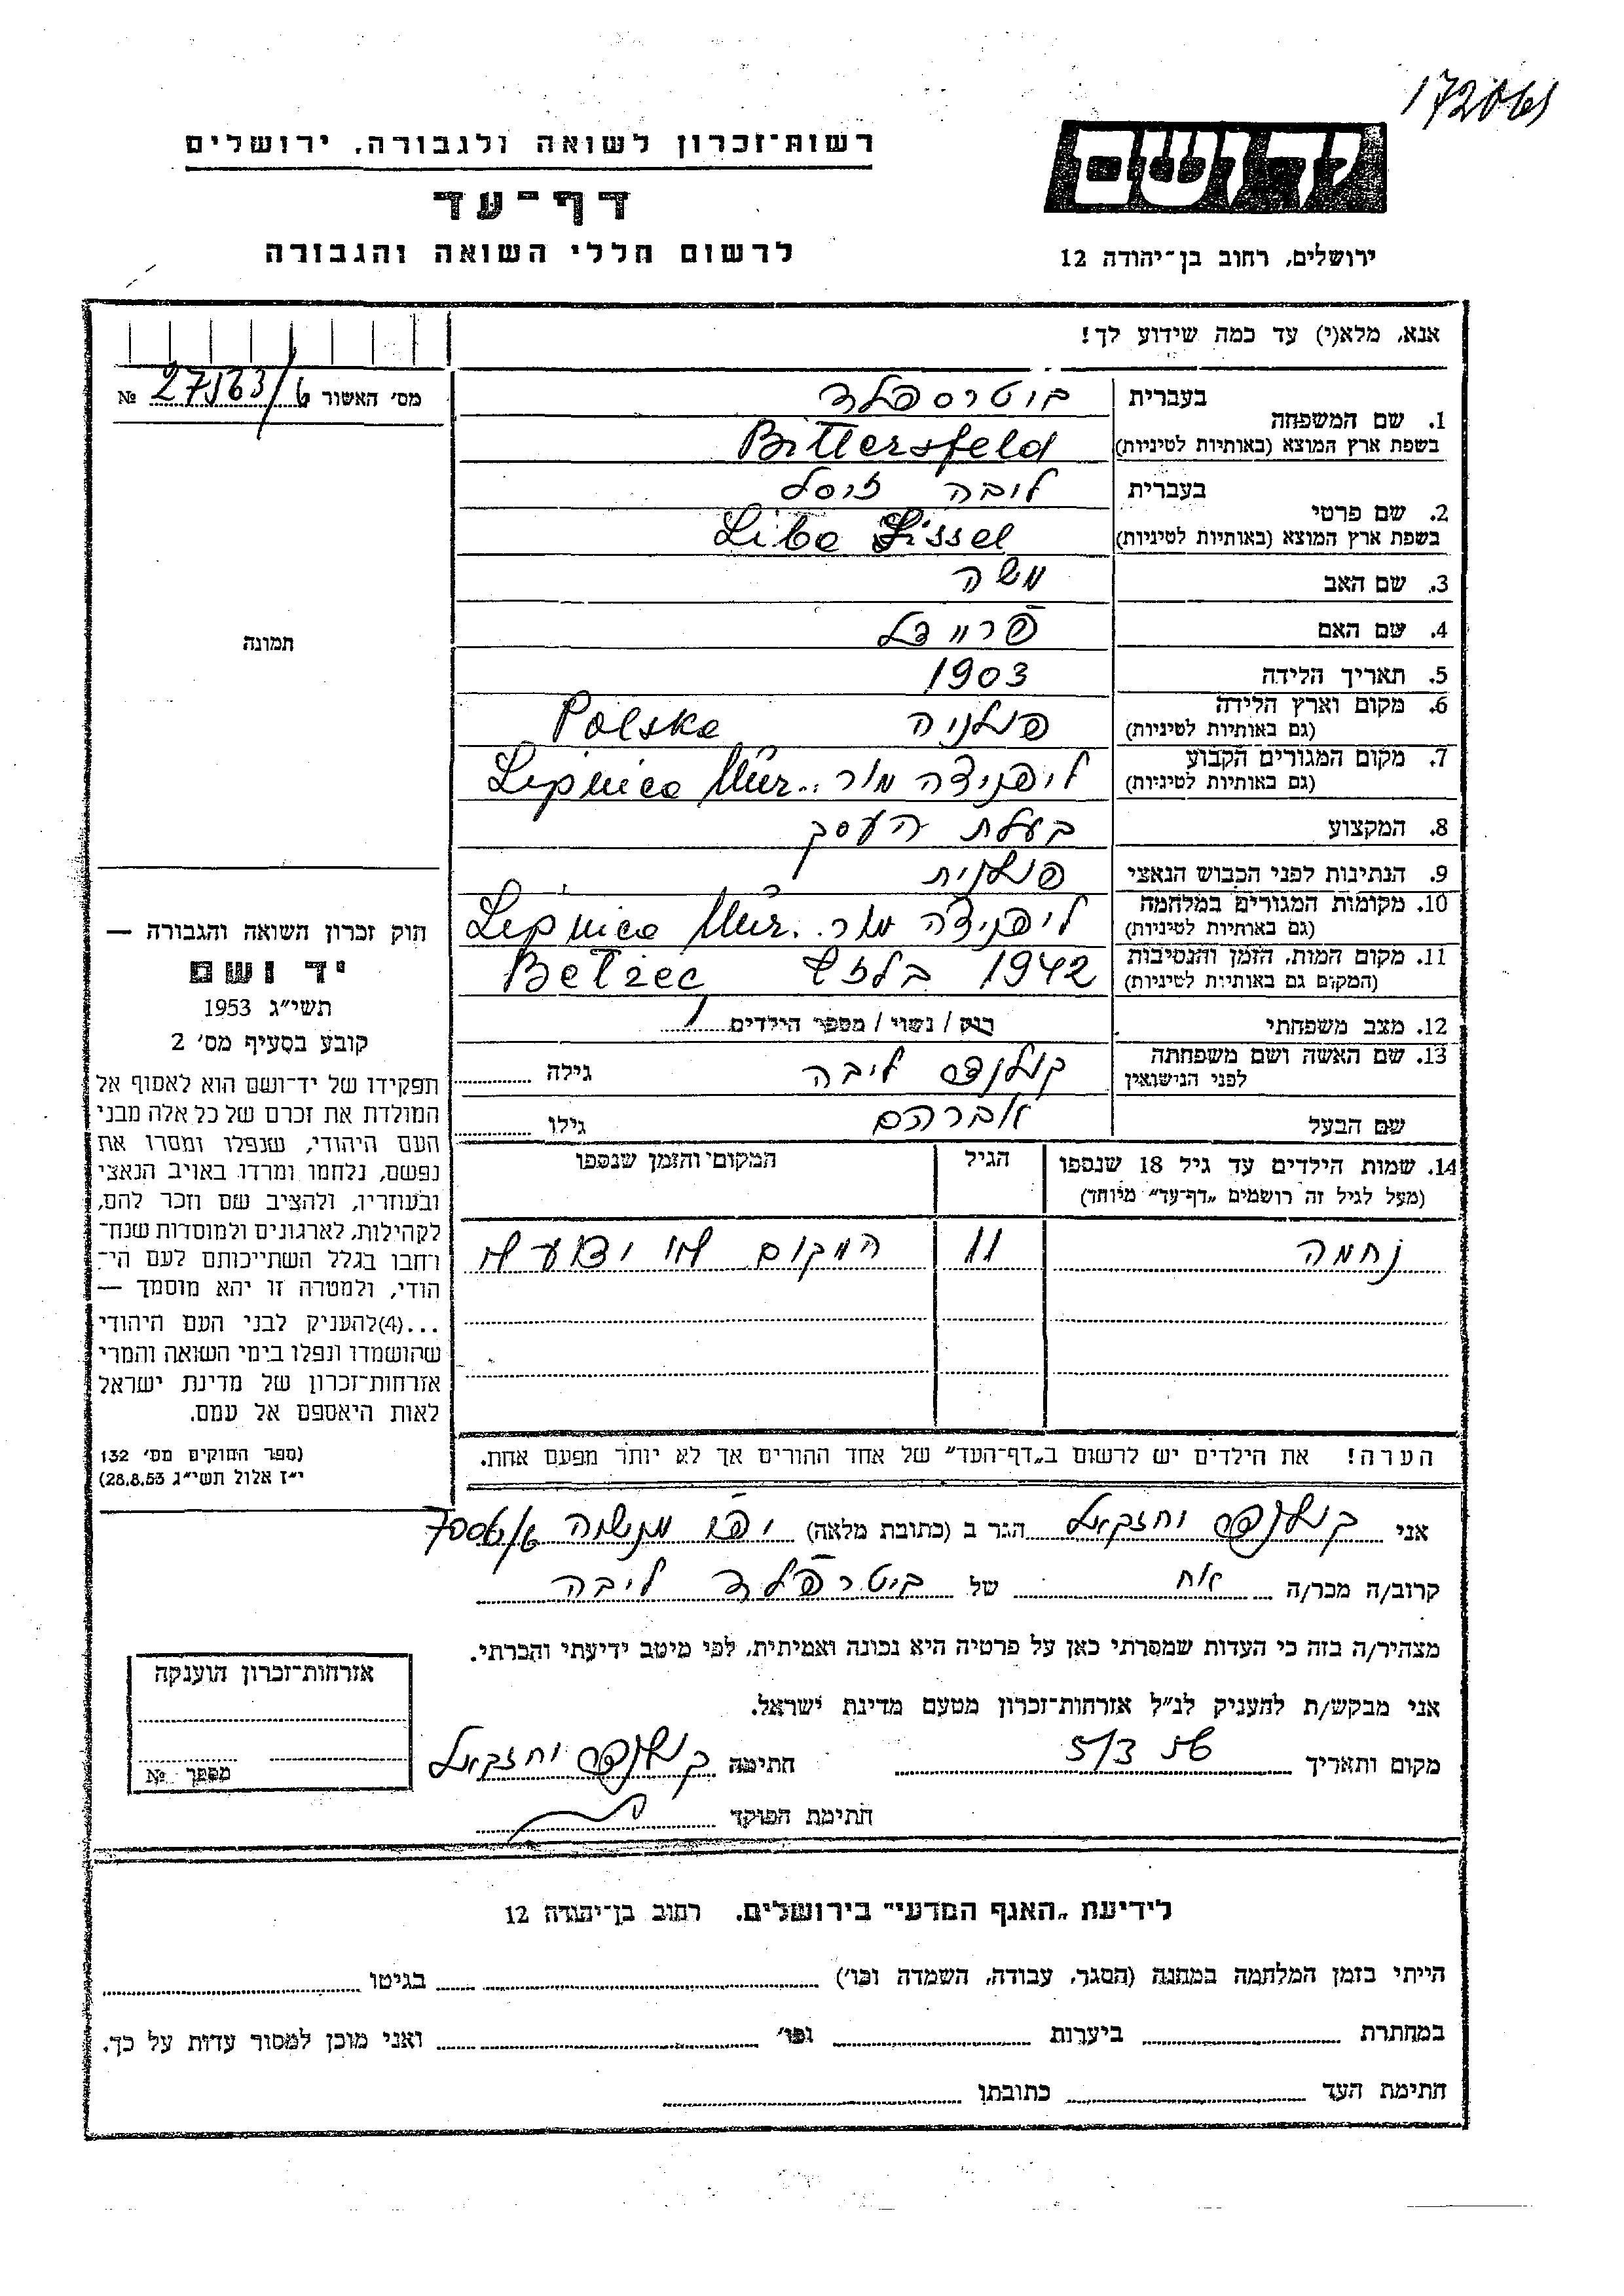 רשות־זכרון לשואה ולגבורה, ירושלים
דף־עד
לרשום חללי השואה והגבורה
ידושם
ירושלים, רחוב בן־יהודה 12
אנא, מלא(י) עד כמה שידוע לך!
מס׳ האשור №
1. שם המשפחה
בעברית ביטרספלד
בשפת ארץ המוצא (באותיות לטיניות) Bittersfeld
2. שם פרטי
בעברית ליבה זיסל
בשפת ארץ המוצא (באותיות לטיניות) Liba Sissel
3. שם האב משה
4. שם האם פריידל
5. תאריך הלידה 1903
6. מקום וארץ הלידה (גם באותיות לטיניות) פולניה Polska
7. מקום המגורים הקבוע (גם באותיות לטיניות) ליפניצה מור.. Lipnica Mur.
8. המקצוע בעלת העסק
9. הנתינות לפני הכבוש הנאצי פולנית
10. מקומות המגורים במלחמה (גם באותיות לטיניות) ליפניצה מור.. Lipnica Mur.
11. מקום המות, הזמן והנסיבות (המקום גם באותיות לטיניות) 1942 בלזץ Betzec
12. מצב משפחתי רוק / נשוי / מספר הילדים 1
13. שם האשה ושם משפחתה לפני הנישואין ליבה גילה
שם הבעל אברהם גילו
14. שמות הילדים עד גיל 18 שנספו הגיל המקום והזמן שנספו
(מעל לגיל זה רושמים „דף־עד״ מיוחד)
נחמה 11 המקום לא ידוע לי
הערה! את הילדים יש לרשום ב„דף־העד״ של אחד ההורים אך לא יותר מפעם אחת.
תמונה
חוק זכרון השואה והגבורה —
יד ושם
תשי״ג 1953
קובע בסעיף מס׳ 2
תפקידו של יד־ושם הוא לאסוף אל
המולדת את זכרם של כל אלה מבני
העם היהודי, שנפלו ומסרו את
נפשם, נלחמו ומרדו באויב הנאצי
ובעוזריו, ולהציב שם וזכר להם,
לקהילות, לארגונים ולמוסדות שנח־
רחבו בגלל השתייכותם לעם הי־
הודי, ולמטרה זו יהא מוסמך —
...(4)להעניק לבני העם היהודי
שהושמדו ונפלו בימי השואה והמרי
אזרחות־זכרון של מדינת ישראל
לאות היאספם אל עמם.
(ספר החוקים מס׳ 132
י״ז אלול תשי״ג 28.8.53)
אני יחזקאל הגר ב (כתובת מלאה) יפו
קרוב/ה מכר/ה אח של ביטרפלד ליבה
מצהיר/ה בזה כי העדות שמסרתי כאן על פרטיה היא נכונה ואמיתית, לפי מיטב ידיעתי והכרתי.
אני מבקש/ת להעניק לנ״ל אזרחות־זכרון מטעם מדינת ישראל.
מקום ותאריך 5/3 56 חתימה יחזקאל
חתימת הפוקד
אזרחות־זכרון הוענקה
מספר №
לידיעת „האגף המדעי״ בירושלים. רחוב בן־יהודה 12
הייתי בזמן המלחמה במחנה (הסגר, עבודה, השמדה וכו׳) בגיטו
במחתרת ביערות וכו׳ ואני מוכן למסור עדות על כך.
חתימת העד כתובתו